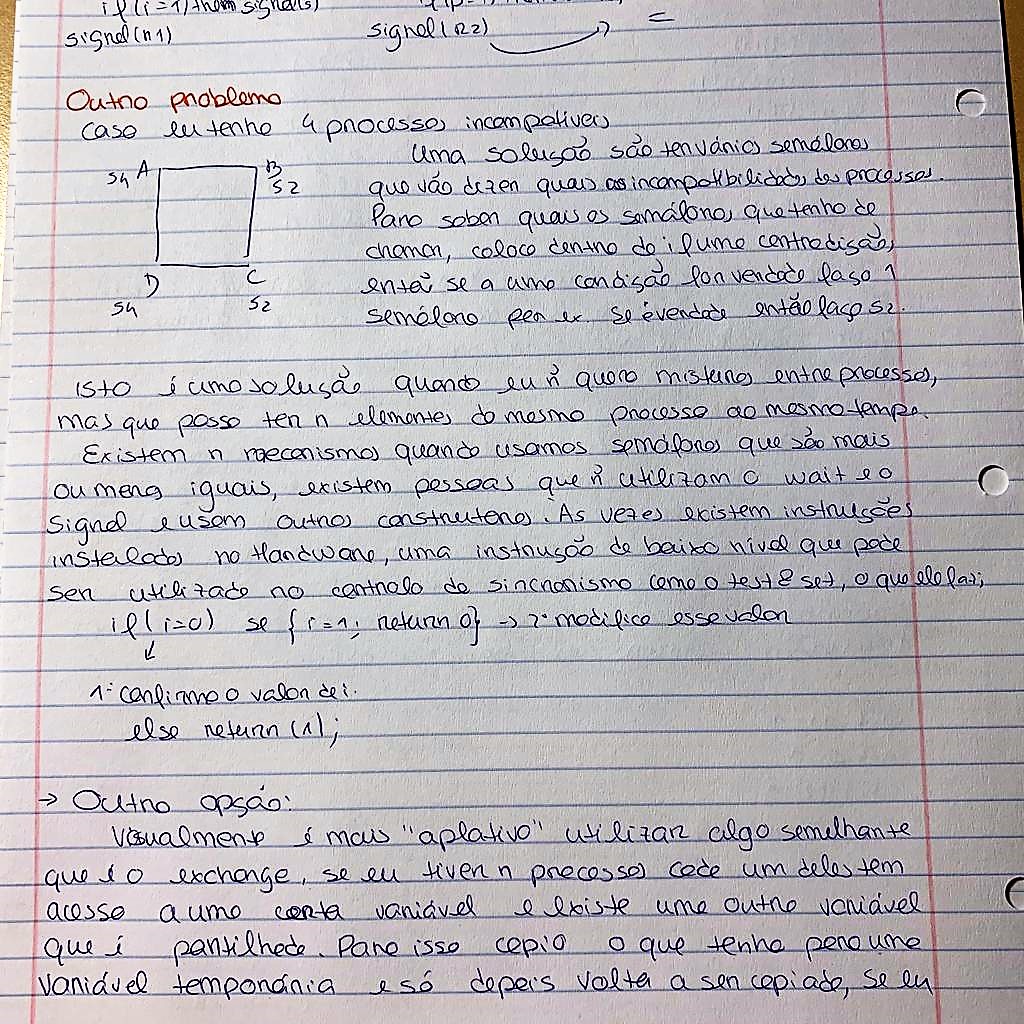 if(i=1) then signal(s)
signal(n1)
signal(n2)
Outro problema
Caso eu tenho 4 processos incompativeis
Uma solução são ter vários semáforos
S4 A B S2
que vão dizer quais as incompatibilidades dos processos.
Para saber quais os semáforos que tenho de
chamar, coloco dentro do if uma contradição,
D C
então se a uma condição for verdade faço 1
S4 S2
semáforo por ex se é verdade então faço s2.
Isto é uma solução quando eu ñ quero misturas entre processos,
mas que posso ter n elementos do mesmo processo ao mesmo tempo.
Existem n mecanismos quando usamos semáforos que são mais
ou menos iguais, existem pessoas que ñ utilizam o wait e o
signal e usam outros construtores. As vezes existem instruções
instaladas no Hardware, uma instrução de baixo nível que pode
ser utilizada no controlo do sincronismo como o test & set, o que ele faz;
if(i=0) se {i=1; return 0} → 2º modifico esse valor
1º confirmo o valor de i.
else return (1);
→ Outra opção:
Visualmente é mais "aplativo" utilizar algo semelhante
que é o exchange, se eu tiver n processos cada um deles tem
acesso a uma certa variável e existe uma outra variável
que é partilhada. Para isso copio o que tenho para uma
variável temporária e só depois volta a ser copiado, se eu